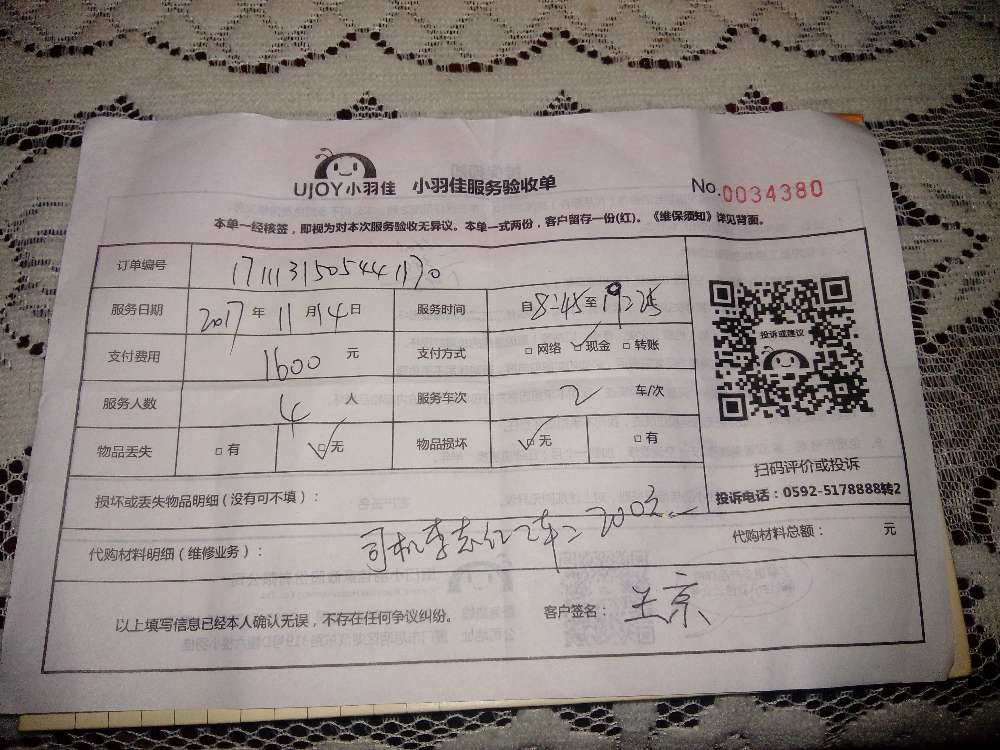 UJOY小羽佳 小羽佳服务验收单 No.0034380
本单一经核签，即视为对本次服务验收无异议。本单一式两份，客户留存一份(红)。《维保须知》详见背面。
订单编号 1711131505441170
服务日期 2017年11月14日 服务时间 自8:45至19:25
支付费用 1600元 支付方式 □网络 ☑现金 □转账
投诉或建议
服务人数 4人 服务车次 2车/次
物品丢失 □有 ☑无 物品损坏 ☑无 □有
扫码评价或投诉
投诉电话：0592-5178888转2
损坏或丢失物品明细(没有可不填)：
代购材料明细(维修业务)： 司机李志红 200元 代购材料总额： 元
以上填写信息已经本人确认无误，不存在任何争议纠纷。 客户签名： 王京